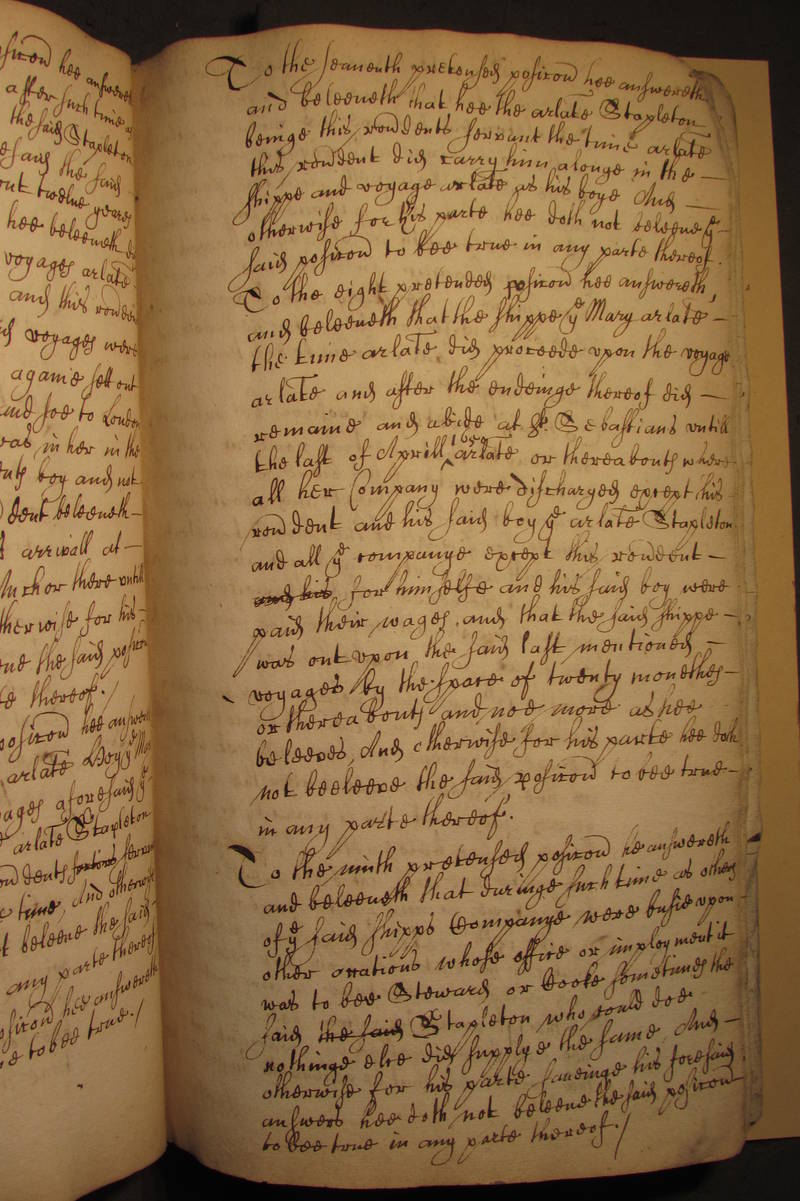 osicon hee answereth
after such time as
the said Stapleton
said the said
out twelve yeares
hee beleeveth
voyages arlate
and this rondent
voyages were
againe sett out
and soe to London
was in her in the
boy and not
dent beleeveth
arrivall at
Anchor there untill
therwise for his
the said posicon
thereof./
posicon hee answereth
arlate Boy ye Mary
ages aforesaid ye
arlate Stapleton
on dents servant
time, And otherwise
t beleeve the said
any parte thereof
osicon hee answereth
e to bee true./
To the seaventh pretensed posicon hee answereth
and beleeveth that hee the arlate Stapleton
beinge this rondents servant the time arlate
this rondent did carry him alonge in the
shippe and voyage arlate as his boye And
otherwise for his parte hee doth not beleeve ye
said posicon to bee true in any parte thereof.
To the eight pretended posicon hee answereth,
and beleeveth that the shippe ye Mary arlate
the time arlate did proceede upon the voyage
arlate and after the endeinge thereof did
remaine and abide at St. Sebastians untill
the last of Aprill 1650 arlate or thereabouts where
all her Company were discharged except this
rondent and his said boy ye arlate Stapleton
and all ye companye except this rondent
and his for himselfe and his said boy were
paid their wages, and that the said shippe
was out upon the said last mentioned
voyages by the space of twenty monethes
or thereabouts and noe more as hee
beleeves, And otherwise for his parte hee doth
not beeleeve the said posicon to bee true
in any parte thereof.
To the ninth pretensed posicon he answereth
and beleeveth that duringe such time as others
of ye said shipps Companye were busie upon
other occations whose office or imployment it
was to bee Steward or Cooke sometimes the
said the said Stapleton who could doe
nothinge else did supplye the same, And
otherwise for his parte saveinge his foresaid
answers hee doth not beleeve the said posicon
to bee true in any parte thereof./